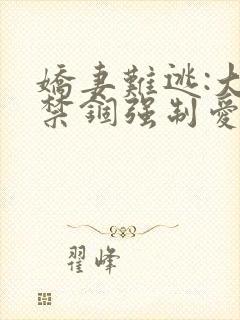 嬌妻難逃:大
禁錮强制愛
翟峰